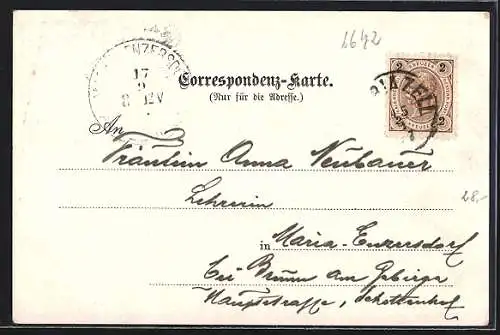 1642
ENZERSD
17
9
8 IV
2 2
2 2
Correspondenz-Karte.
(Nur für die Adresse.)
An
Fräulein Anna Neubauer
Lehrerin
28,-
in Maria-Enzersdorf
bei Brunn am Gebirge
Hauptstrasse, Schottenhof